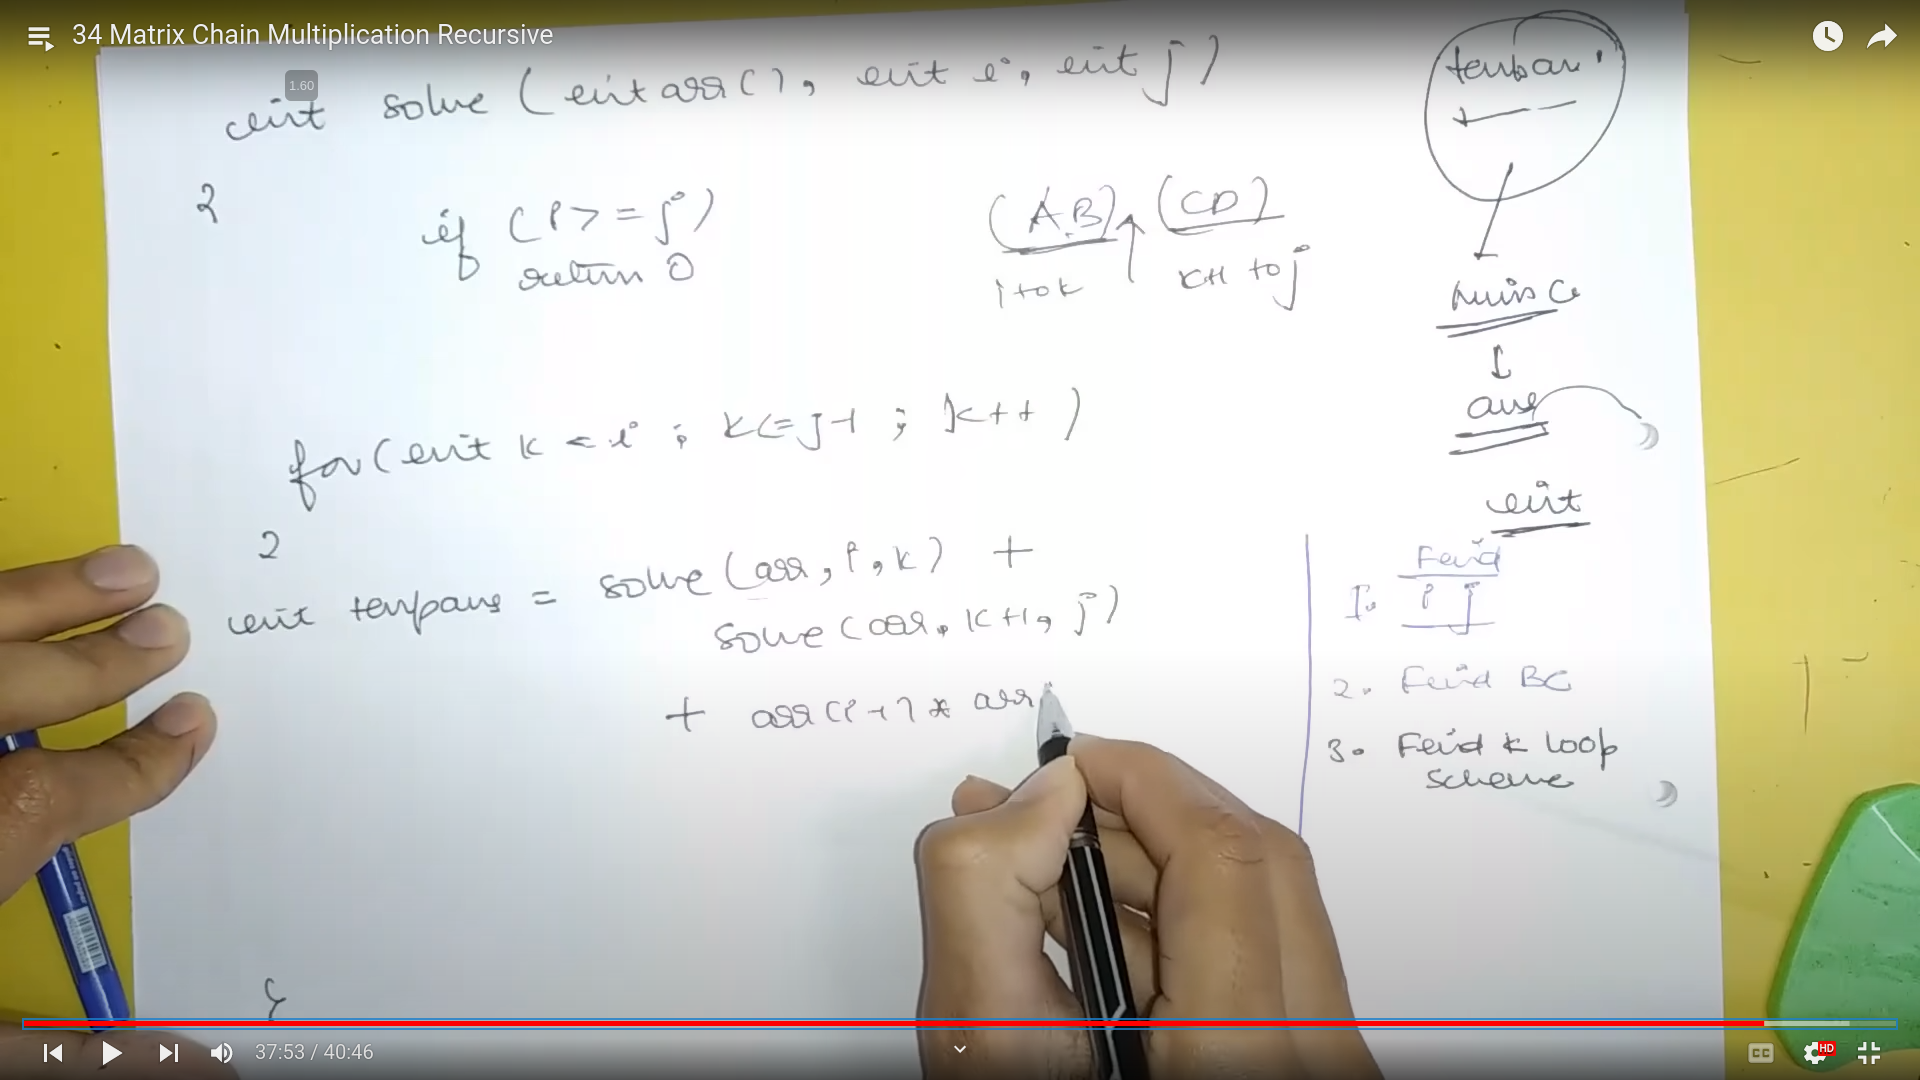 34 Matrix Chain Multiplication Recursive
1.60
int solve (int arr[], int i, int j)
{
if (i >= j)
return 0
(AB) (CD)
i to k
k+1 to j
tempans
min C
ans
int
for (int k = i ; k <= j-1 ; k++)
{
int tempans = solve (arr, i, k) +
solve (arr, k+1, j)
+ arr[i-1] * arr
}
Find
1. i j
2. Find BC
3. Find k loop
scheme
37:53 / 40:46
CC
HD